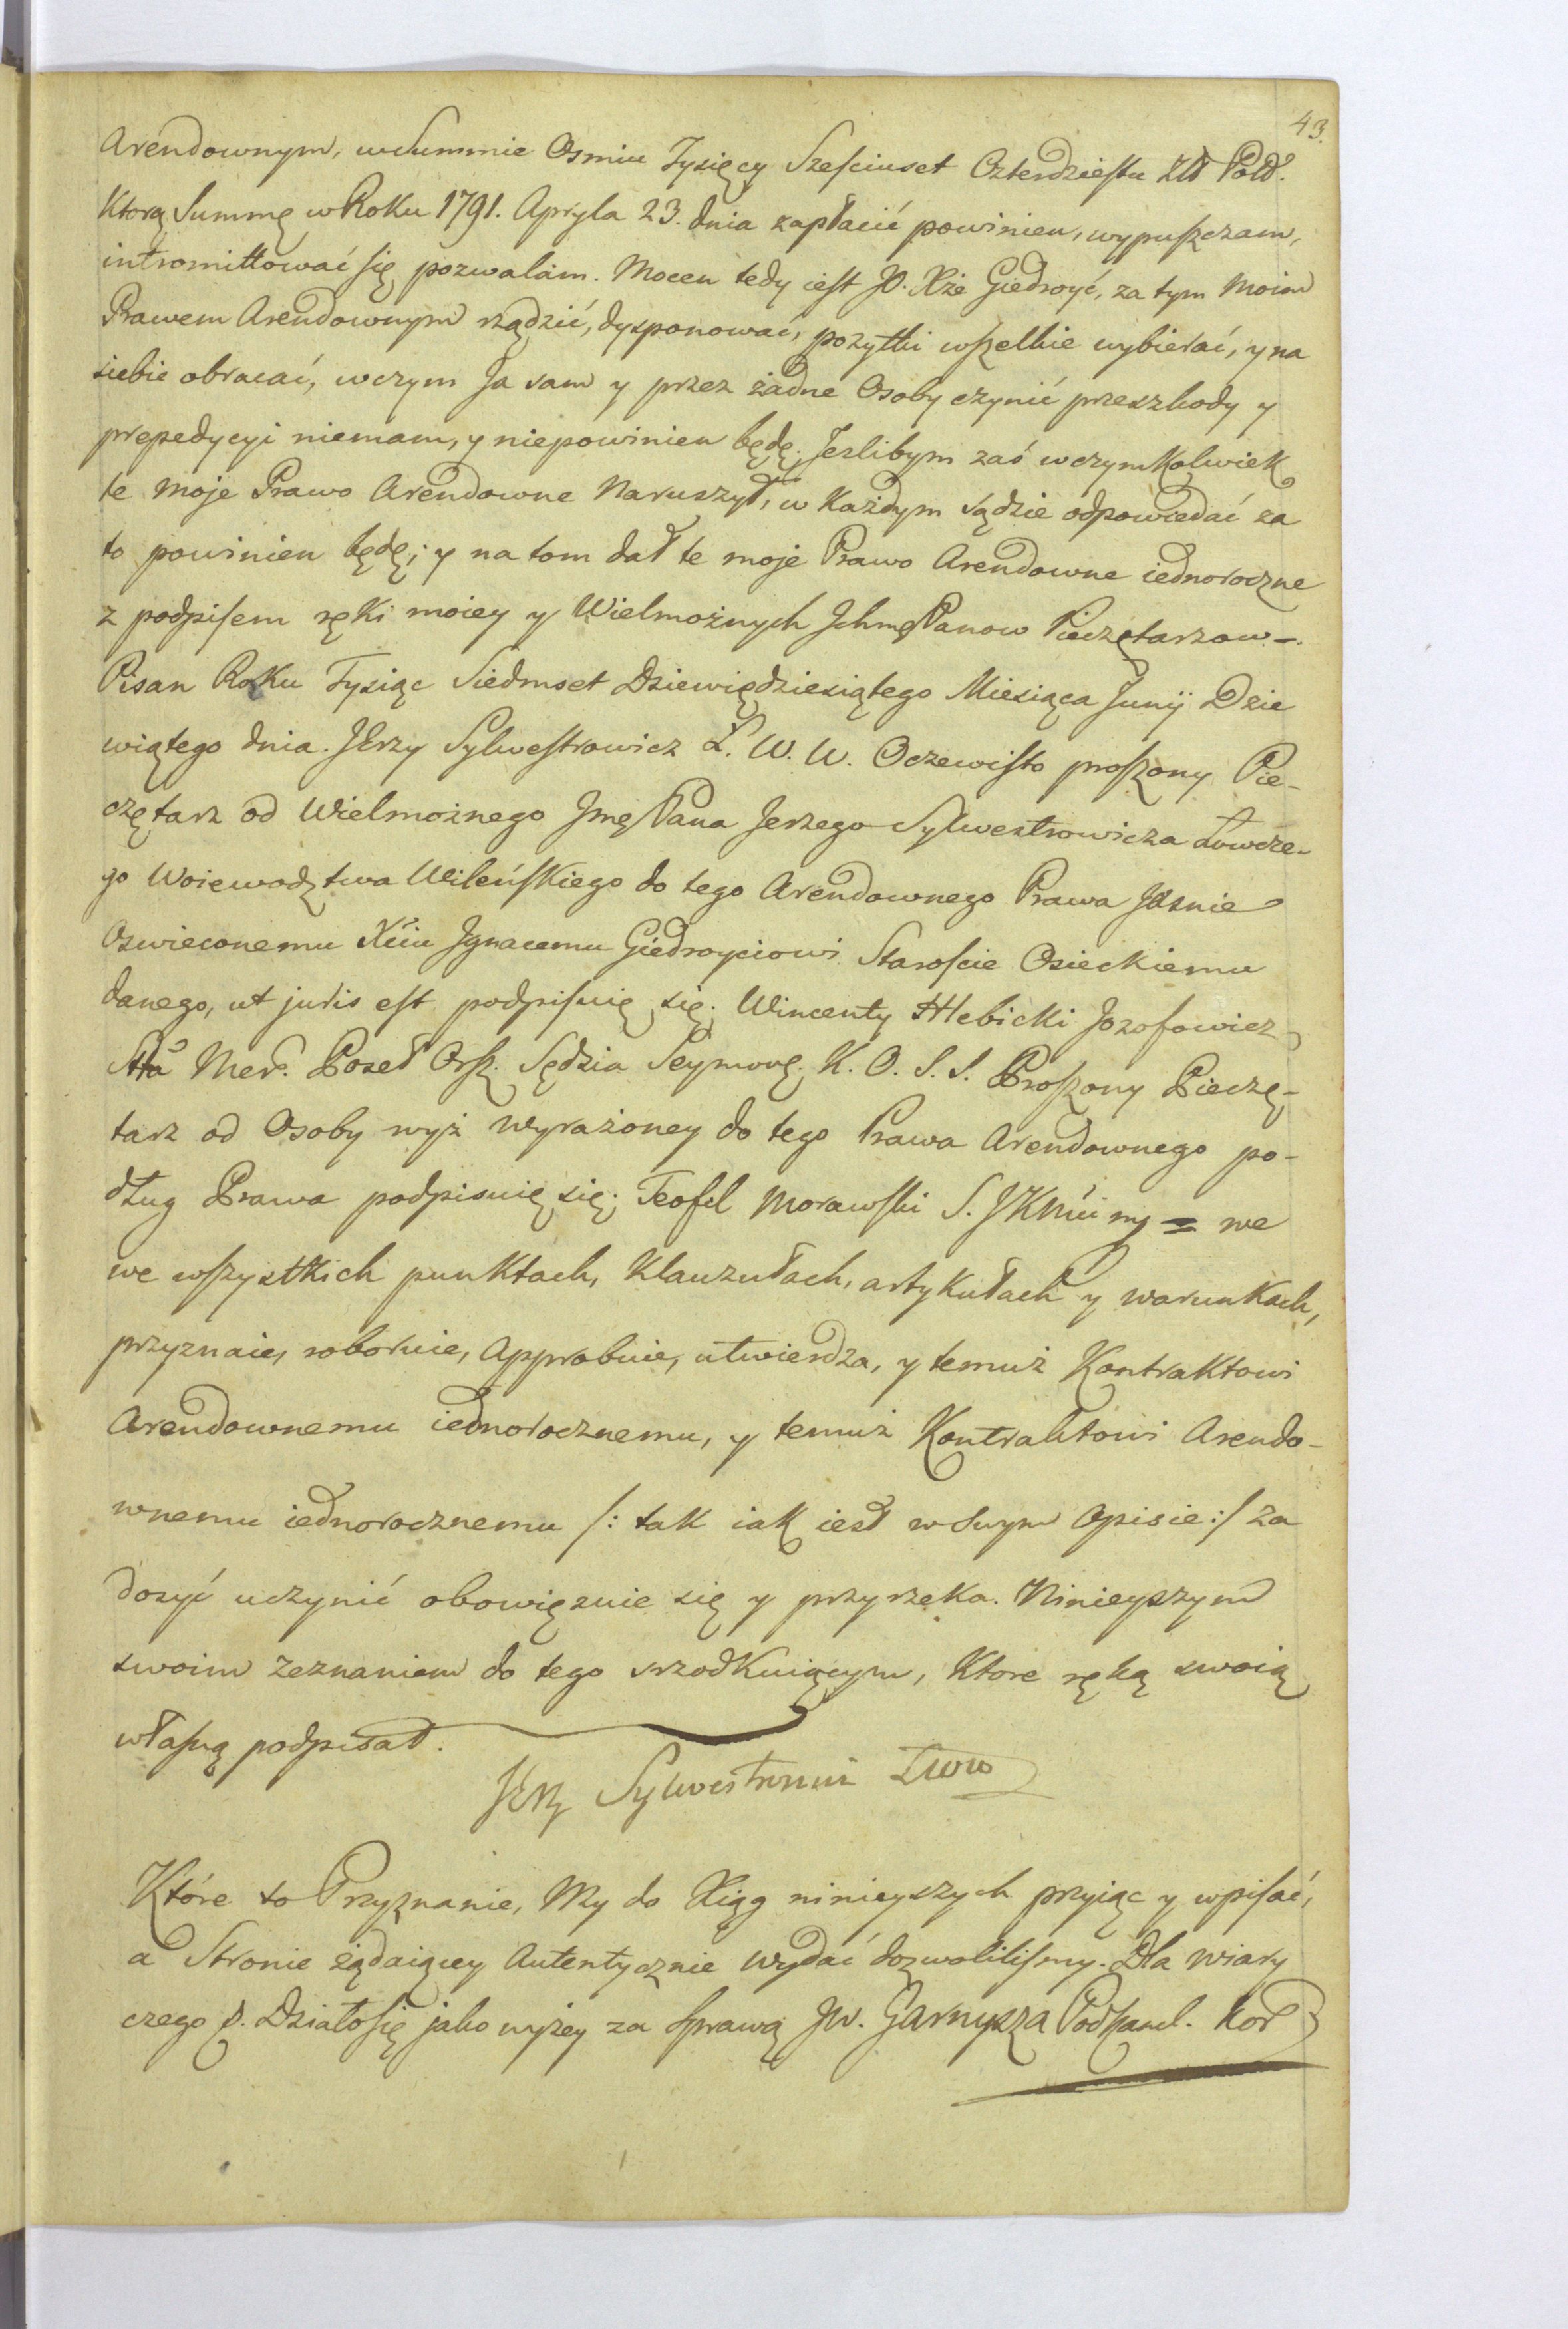 43.
Arendownym, w Summie Osmiu Tysięcy Sześciuset Czterdziestu Złł Pold.
Ktorą Summę w Roku 1791. Apryla 23. dnia zapłacić powinien, wypuszczam,
intromittować się pozwalam. Mocen tedy iest JO. Xże Giedroyć, za tym moim
Prawem Arendownym rządzić, dysponować, pozytki wszelkie wybierać, y na
siebie obracać, w czym Ja sam y przez żadne Osoby czynić przeszkody y
prepedycyi niemam, y niepowinien będę. Jeslibym zaś w czymkolwiek
te moje Prawo Arendowne naruszył, w Każdym sądzie odpowiedać za
to powinien będę; y na tom dał te moje Prawo Arendowne iednoroczne
z podpisem ręki moiey y Wielmożnych Ichmę Panow Pieczętarzow -.
Pisan Roku Tysiąc Siedmset Dziewiędziesiątego Miesiąca Junij Dzie
wiątego dnia. JErzy Sylwestrowicz Ł. W. W. Oczewisto proszony Pie-
czętarz od Wielmożnego Jmę Pana Jerzego Sylwestrowicza Łowcze-
go Woiewodztwa Wileńskiego do tego Arendownego Prawa Jasnie
Oswieconemu Xciu Jgnacemu Giedroyciowi Staroscie Osieckiemu
danego, ut juris est podpisuię się. Wincenty Hlebicki Jozofowicz
Stta Mer. Poseł Orsz. Sędzia Seymowę. K. O. S. S. Proszony Pieczę-
tarz od Osoby wyż wyrażoney do tego Prawa Arendownego po-
dług Prawa podpisuię się. Teofil Morawski S. JKMci mę = we
we wszystkich punktach, Klauzułach, artykułach y warunkach,
przyznaie, roboruie, Approbuie, utwierdza, y temuż Kontraktowi
Arendownemu iednorocznemu, y temuż Kontraktowi Arendo-
wnemu iednorocznemu /: tak iak iest w swym Opisie :/ za
dosyć uczynić obowięzuie się y przyrzeka. Ninieyszym
swoim zeznaniem do tego srzodkuiącym, Ktore ręką swoią
własną podpisał.
JErzy Sylwestrowicz ŁWW
Które to Przyznanie, My do Xiąg ninieyszych przyiąc y wpisać,
a Stronie żądaiącey Autentycznie wydać dozwolilismy. Dla wiary
czego p. Działo się jako wyżey za sprawą Jw. Garnysza Podkancl. Kor